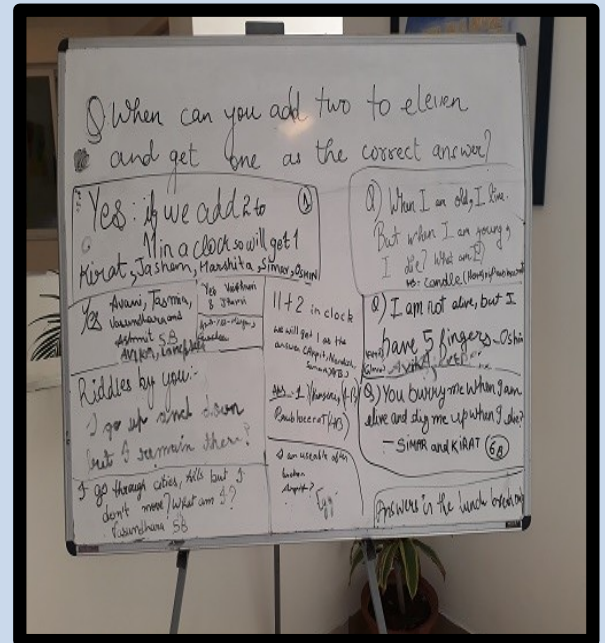 Q. When can you add two to eleven
and get one as the correct answer?
Yes: if we add 2 to
11 in a clock so will get 1
Kirat, Jashann, Harshita, Simar, OSHIN
Yes Avani, Tasmia,
Vasundhara and
Ashmit 5B
Yes Vaibhavi
11+2 in clock
we will get 1 as the
answer
Ans - 1
Riddles by you:-
I go up and down
but I remain there?
I go through cities, hills but I
don't move? What am I?
Vasundhara 5B
I am useable after
broken
Egg
Q) When I am old, I live.
But when I am young,
I die? What am I?
candle
Q) I am not alive, but I
have 5 fingers - Oshin
Q) You burry me when I am
alive and dig me up when I die?
- SIMAR and KIRAT 6B
Answers in the lunch break only